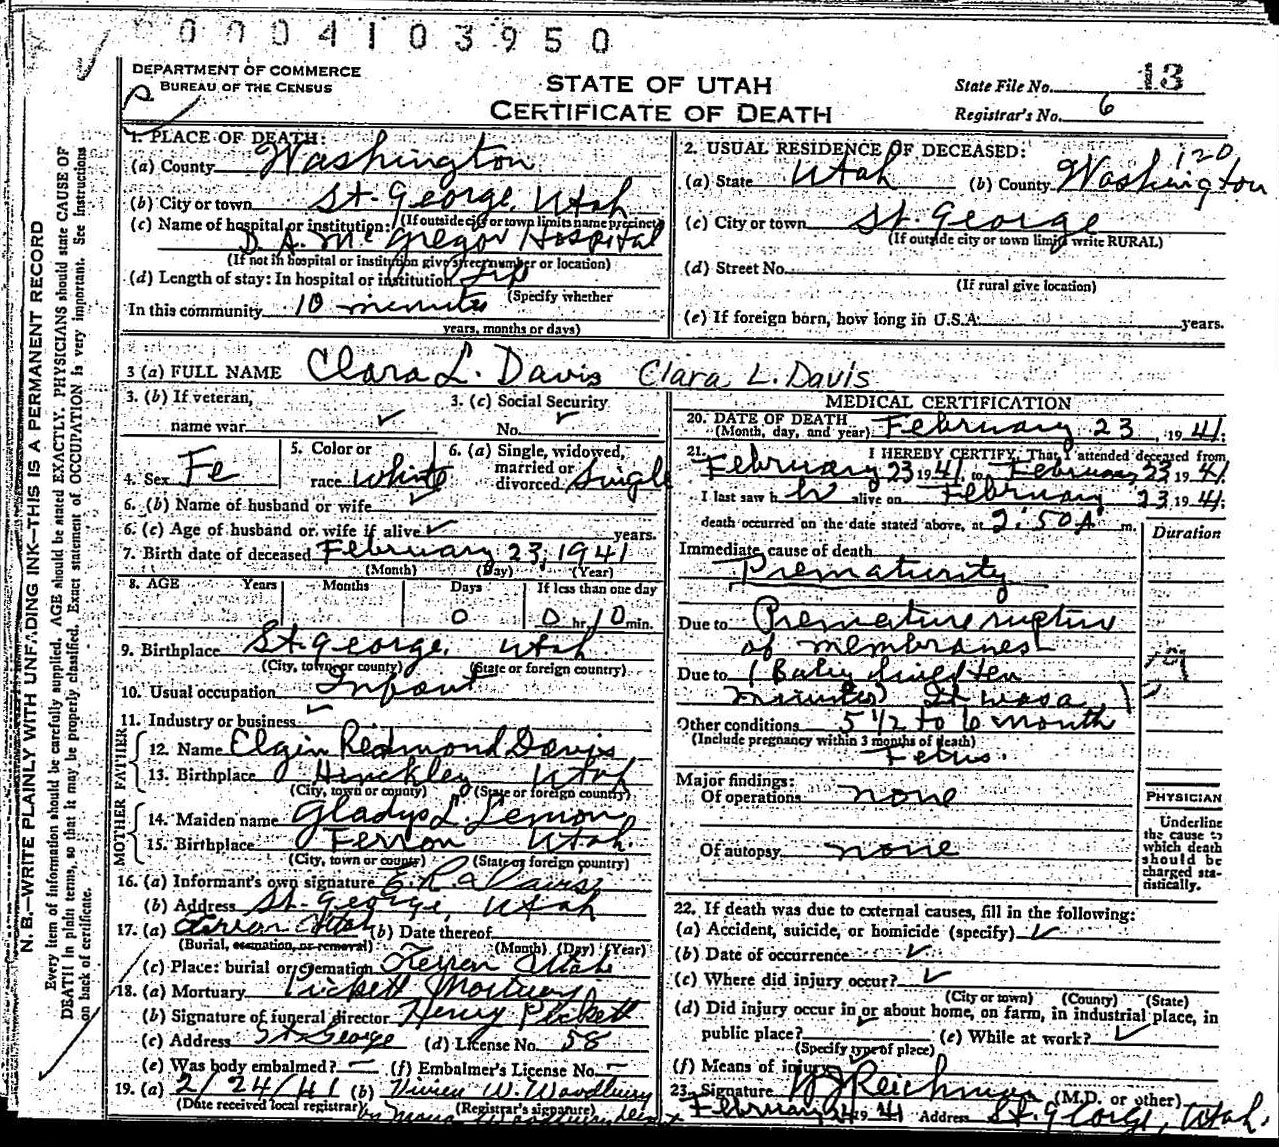 0004103950
DEPARTMENT OF COMMERCE
BUREAU OF THE CENSUS
STATE OF UTAH
CERTIFICATE OF DEATH
State File No. 13
Registrar's No. 6
N. B.—WRITE PLAINLY WITH UNFADING INK—THIS IS A PERMANENT RECORD
Every item of information should be carefully supplied. AGE should be stated EXACTLY. PHYSICIANS should state CAUSE OF
DEATH in plain terms, so that it may be properly classified. Exact statement of OCCUPATION is very important. See instructions
on back of certificate.
1. PLACE OF DEATH:
(a) County Washington
(b) City or town St. George, Utah
(If outside city or town limits name precinct)
(c) Name of hospital or institution:
D. A. McGregor Hospital
(If not in hospital or institution give street number or location)
(d) Length of stay: In hospital or institution
(Specify whether
In this community 10 minutes
years, months or days)
2. USUAL RESIDENCE OF DECEASED: 120
(a) State Utah (b) County Washington
(c) City or town St. George
(If outside city or town limits write RURAL)
(d) Street No.
(If rural give location)
(e) If foreign born, how long in U.S.A. years.
3 (a) FULL NAME Clara L. Davis Clara L. Davis
3. (b) If veteran, name war ✓
3. (c) Social Security No. ✓
4. Sex Fe
5. Color or race White
6. (a) Single, widowed, married or divorced Single
6. (b) Name of husband or wife ✓
6. (c) Age of husband or wife if alive ✓ years.
7. Birth date of deceased February 23, 1941
(Month) (Day) (Year)
8. AGE Years Months Days If less than one day
0 0 hr. 10 min.
9. Birthplace St. George, Utah
(City, town or county) (State or foreign country)
10. Usual occupation Infant
11. Industry or business ✓
FATHER
12. Name Elgin Redmond Davis
13. Birthplace Hinckley Utah
(City, town or county) (State or foreign country)
MOTHER
14. Maiden name Gladys L. Lemon
15. Birthplace Ferron Utah.
(City, town or county) (State or foreign country)
16. (a) Informant's own signature E. R. Davis
(b) Address St. George, Utah
17. (a) Ferron Utah (b) Date thereof
(Burial, cremation, or removal) (Month) (Day) (Year)
(c) Place: burial or cremation Ferron Utah
18. (a) Mortuary Pickett Mortuary
(b) Signature of funeral director Henry Pickett
(c) Address St George (d) License No. 58
(e) Was body embalmed? — (f) Embalmer's License No. —
19. (a) 2/24/41 (b) Vivien W. Woodbury
(Date received local registrar) (Registrar's signature)
Woodbury
MEDICAL CERTIFICATION
20. DATE OF DEATH February 23, 1941.
(Month, day, and year)
21. I HEREBY CERTIFY, That I attended deceased from
February 23 1941 to February 23 1941
I last saw h er alive on February 23, 1941.
death occurred on the date stated above, at 2:50 A m.
Duration
Immediate cause of death
Prematurity
Due to Premature rupture
of membranes
Due to (Baby lived ten
minutes) It was a
Other conditions 5 1/2 to 6 month
(Include pregnancy within 3 months of death)
Fetus.
Major findings:
Of operations none
Of autopsy none
PHYSICIAN
Underline the cause to which death should be charged statistically.
22. If death was due to external causes, fill in the following:
(a) Accident, suicide, or homicide (specify) ✓
(b) Date of occurrence ✓
(c) Where did injury occur? ✓
(City or town) (County) (State)
(d) Did injury occur in or about home, on farm, in industrial place, in
public place? ✓ (e) While at work? ✓
(Specify type of place)
(f) Means of injury
23. Signature Reichman (M.D. or other)
February 24 1941 Address St. George, Utah.